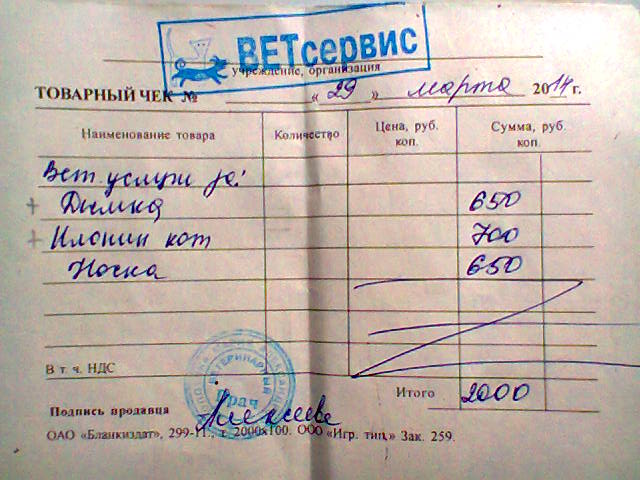 ВЕТсервис
учреждение, организация
ТОВАРНЫЙ ЧЕК № « 29 » марта 2014 г.
Наименование товара Количество Цена, руб. коп. Сумма, руб. коп.
Вет. услуги за:
+ Дымка 650
+ Илонин кот 700
Носка 650
В т. ч. НДС
Итого 2000
ВЕТЕРИНАРНЫЙ
Врач
Подпись продавца Алексеева
ОАО «Бланкиздат», 299-11., т. 2000х100. ООО «Игр. тиц.» Зак. 259.